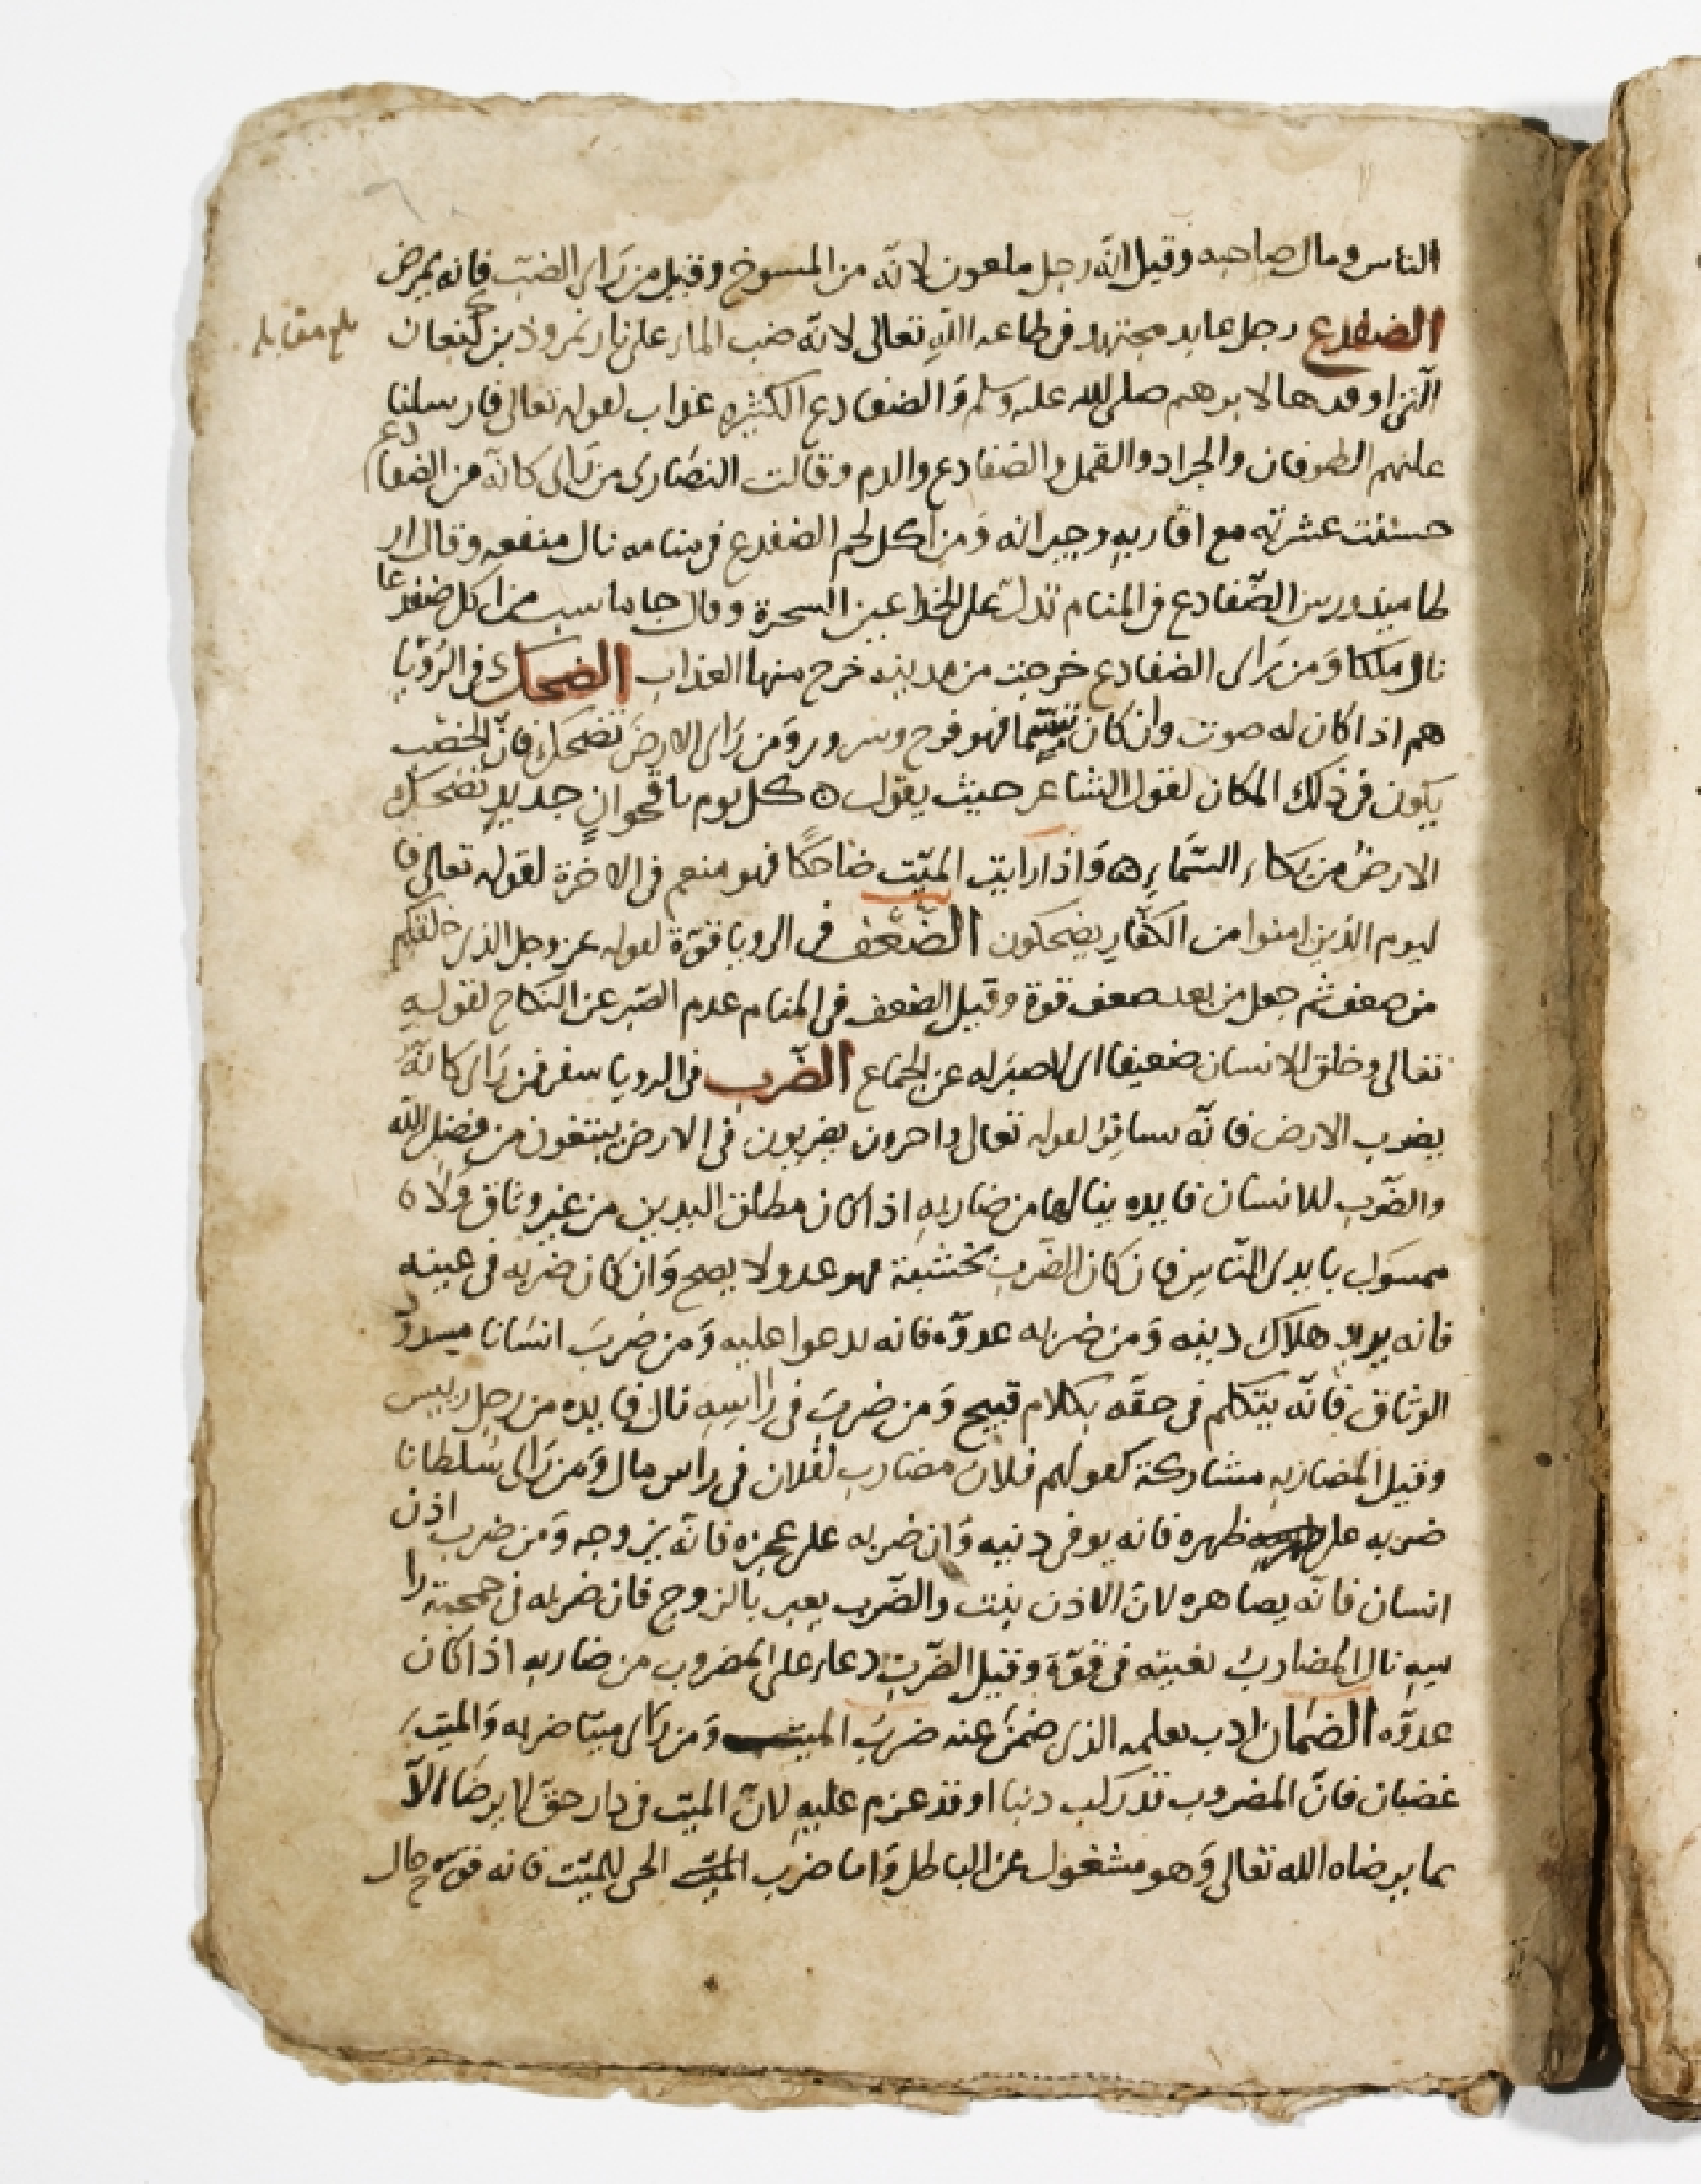 الناس ومال صاحبه وقيل انّه رجل ملعون لانّه من المسوخ وقيل من رَاى الضبّ فانه يمرض
الضفدع رجل عابد مجتهد في طاعه اللّه تعالى لانّه صب الماء على نار نمروذ بن كنعان
بلغ مقابله
الّتي اوقدها لابرهيم صلى الله عليه وسلم وَالضفادع الكثيره عذاب لقوله تعالى فارسلنا
عليهم الطوفان والجراد والقمل والضفادع والدم وقالت النصَارى من رَاى كانّه من الضفادع
حسنت عشرته مع اقاربه وجيرانه وَمن اكل لحم الضفدع في منامه نال منفعه وقال ار
طاميدورس الضّفادع في المنام تدلّ على الخداعين السحرة وقال جاماسب من اكل ضفدعا
نال ملكا وَمن رَاى الضفادع خرجت من مدينه خرج منها العذاب الضحك في الرّويا
هم اذا كان له صوت وان كان تبسّما فهو فرح وسرور وَمن رَاى الارضَ تضحك فانّ الخصب
يكون في ذلك المكان لقول الشاعر حيث يقول ۞ كل يوم باقحوانٍ جديدٍ تضحك
الارضُ من بكاء السّماءِ ۞ وَاذا رايت الميّت ضاحكًا فهو منعم في الاخرة لقوله تعالى فا
ليوم الذين امنوا من الكفّار يضحكون الضّعف في الرويا قوّة لقوله عز وجل الذي خلقكم
من ضعف ثم جعل من بعد ضعف قوة وقيل الضعف في المنام عدم الصّبر عن النكاح لقوله
تعالى وخلق الانسان ضعيفا اى لا صبرَ له عن الجماع الضّرب في الرويا سفر فمن رَاى كانّه
يضرب الارض فانّه يسافرُ لقوله تعالى واخرون يضربون في الارض يبتغون من فضل الله
والضّرب للانسان فايده ينالها من ضاربه اذا كان مطلق اليدين من غير وثاق وَلا
ممسوك بايدى النّاس فان كان الضّرب بخشبة فهو عدو لا يصح وَان كان ضربه في عينه
فانه يريد هلاك دينه وَمن ضربه عدوّه فانه يدعوا عليه وَمن ضربَ انسَانا ميسدود
الوثاق فانّه يتكلم في حقّه بكلام قبيح وَمن ضربَ في راسِه نال فايده من رجل رييس
وقيل المضاربه مشاركة كقولهم فلان مضارب لفلان في راس مال وَمن رَاى سُلطانا
ضربه على ظهره فانه يوفى دنيه وَان ضربه على عجزه فانّه يزوجه وَمن ضرب اذن
انسان فانّه يصاهره لانّ الاذن بنت والضّرب يعبر بالزوج فان ضربه في جمجمة را
سِه نال المضاربُ بغيته في قوّة وقيل الضّرب دعاء على المضروب من ضاربه اذا كان
عدوّه الضمَان ادب يعلمه الذى ضمنَ عنه ضربُ الميت وَمن رَاى ميتا ضربه وَالميت
غضبان فانّ المضروب قد ركب دنبا او قد عزم عليه لانّ الميّت في دار حقّ لا يرضَا الّا
بما يرضاه الله تعالى وَهو مشغول عن الباطل وَاما ضرب الحى للميّت فانه قوّه حال